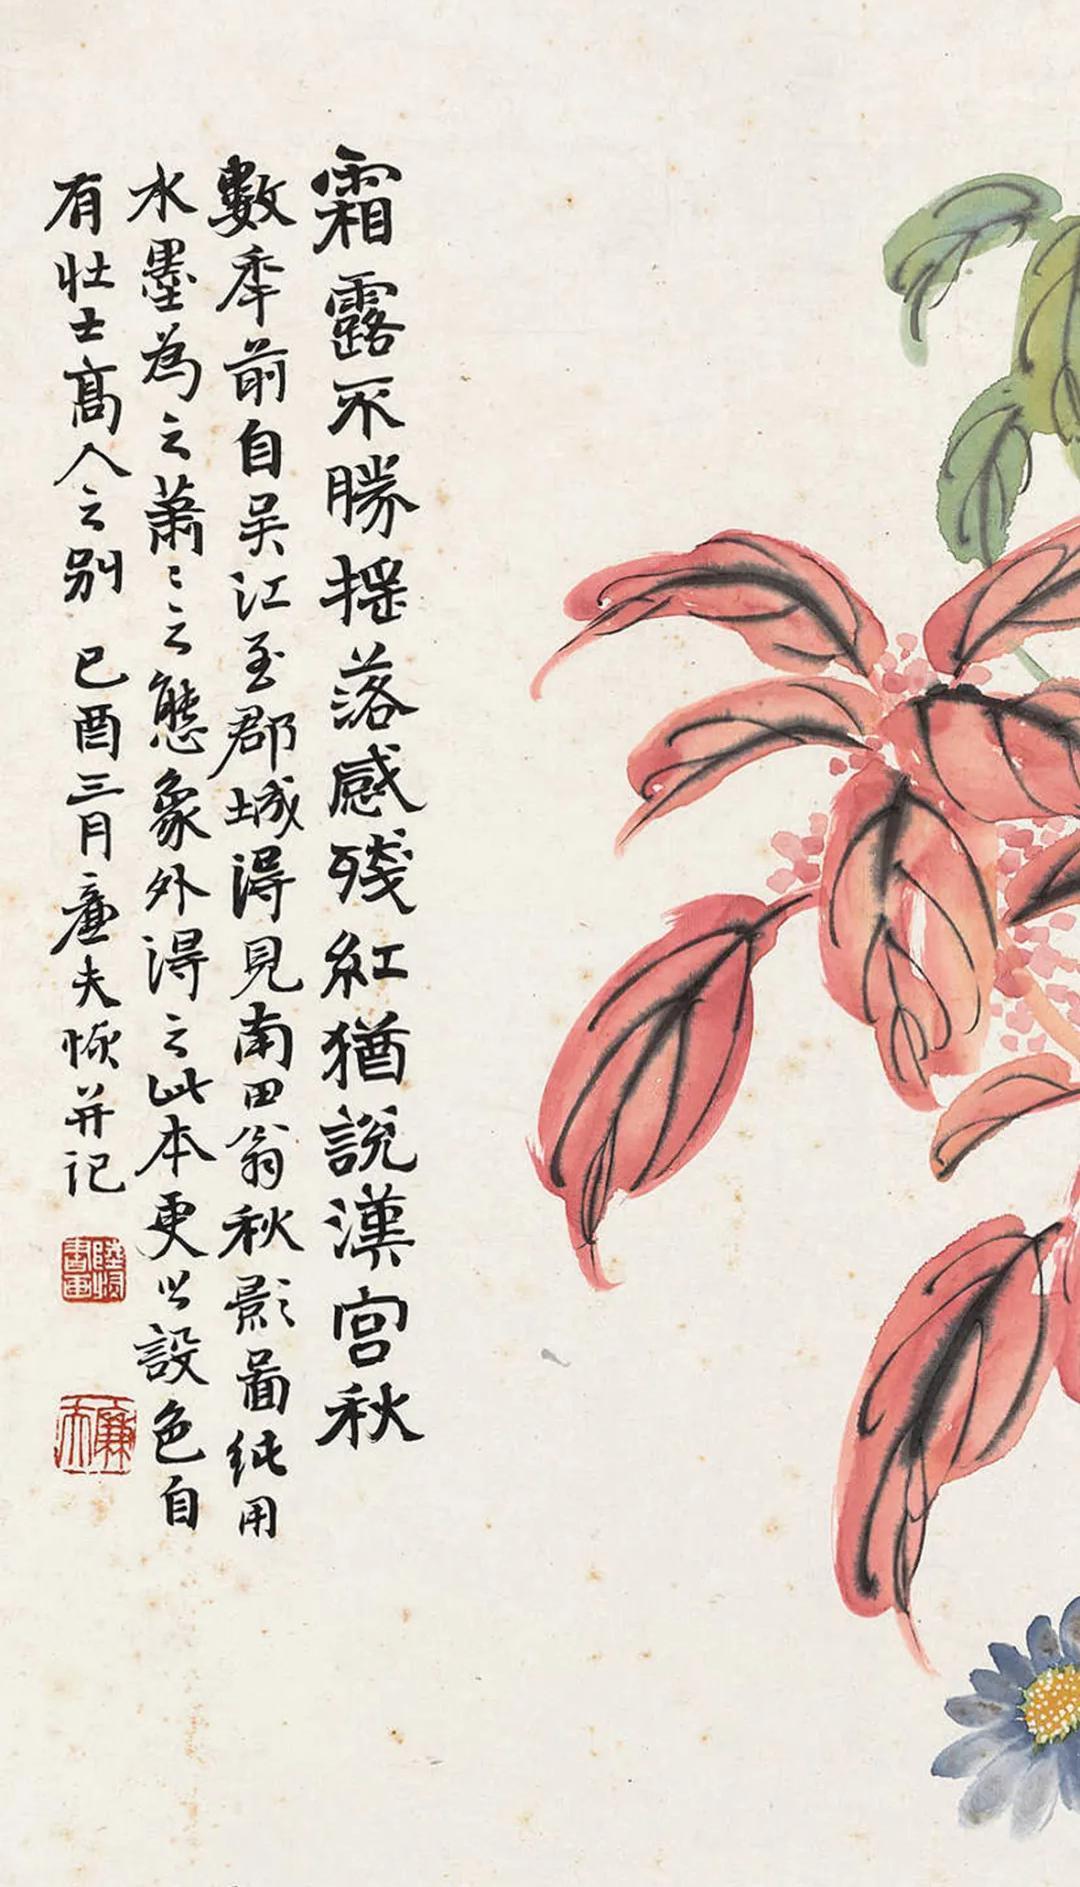 霜露不勝摇落感殘紅猶說漢宮秋
數年前自吴江至郡城得見南田翁秋影啚純用
水墨為之蕭〻之態象外得之此本更以設色自
有壯士高人之别 已酉三月廉夫恢并記
陸恢書画
廉夫